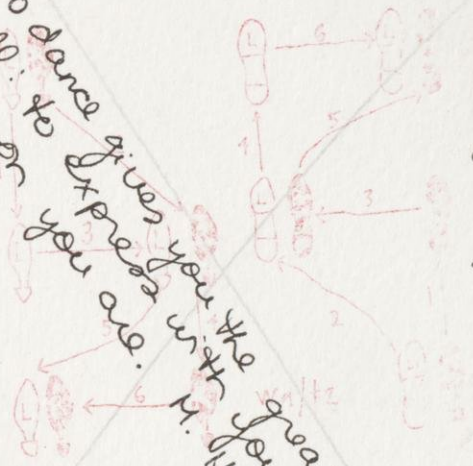 dance gives you the grea
to express with you
or you are. M.
L 6 L
4
5
L 3
3 L
2
1
5
L 6
Waltz